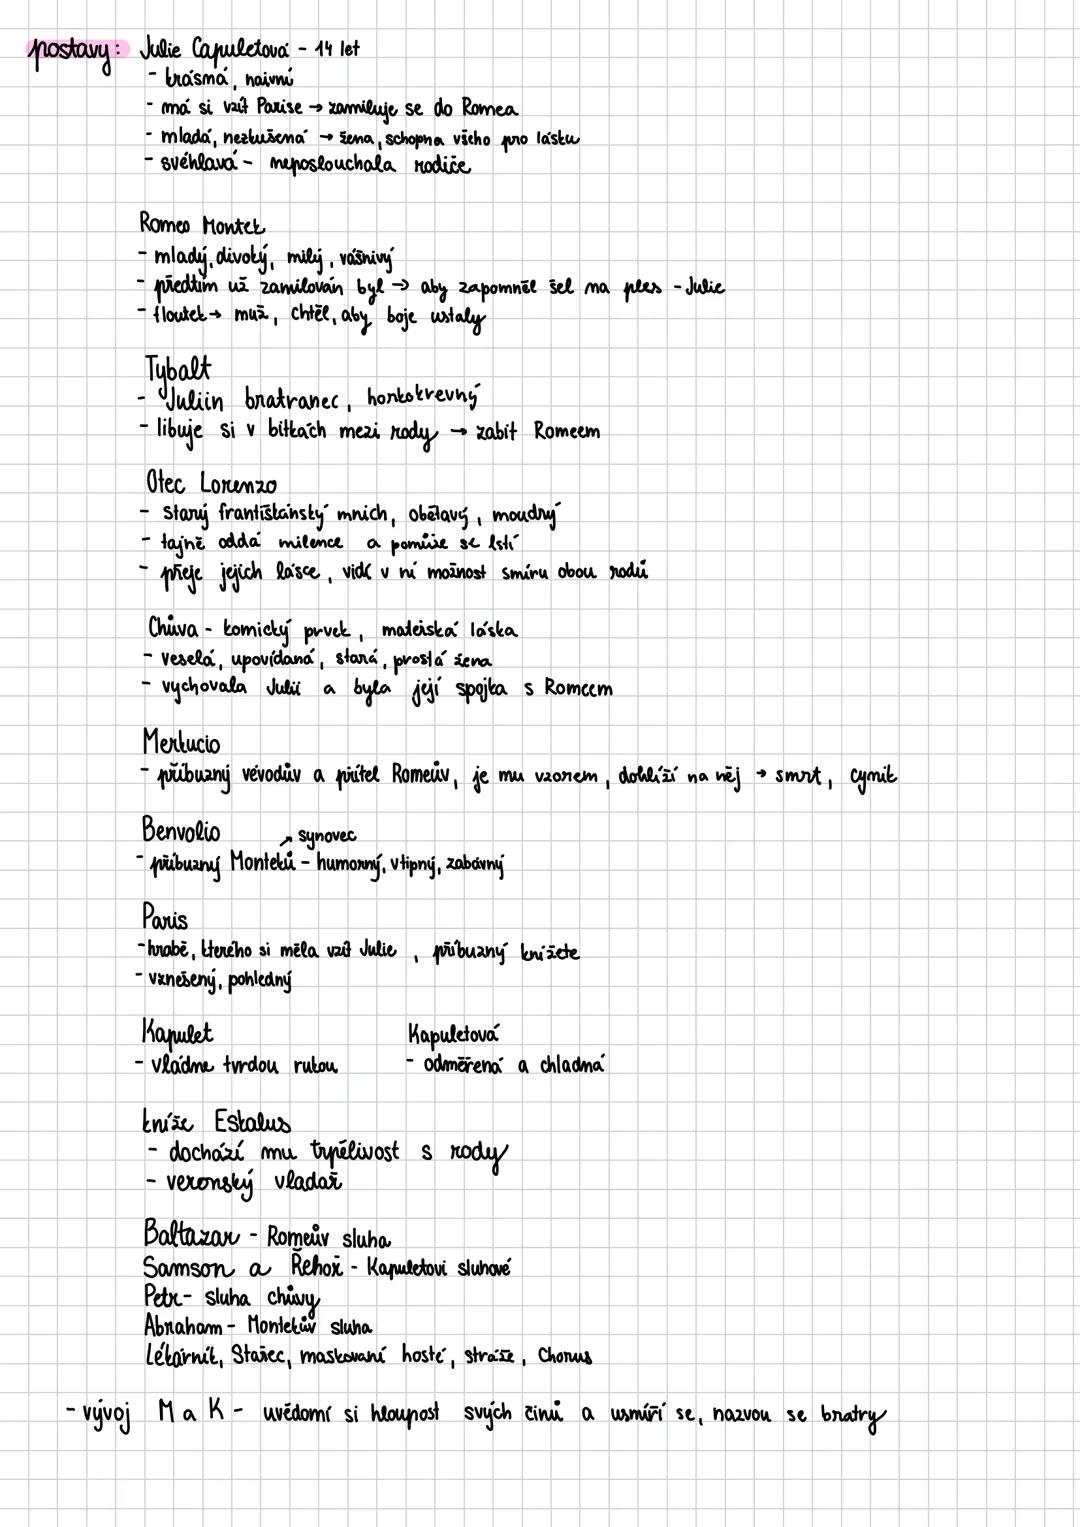 postavy: Julie Capuletová - 14 let
- krásná, naivní
- má si vzít Parise → zamiluje se do Romea
- mladá, nezkušená → žena, schopna všcho pro lásku
- svéhlavá - neposlouchala rodiče
Romeo Montek
- mladý, divoký, milý, vášnivý
- předtím už zamilován byl → aby zapomněl šel na ples - Julie
- floutek → muž, chtěl, aby boje ustaly
Tybalt
- Juliin bratranec, horkokrevný
- libuje si v bitkách mezi rody → zabit Romeem
Otec Lorenzo
- starý františkánský mnich, obětavý, moudrý
- tajně oddá milence a pomůže se lstí
- přeje jejich lásce, vidí v ní možnost smíru obou rodů
Chůva - komický prvek, mateřská láska
- veselá, upovídaná, stará, prostá žena
- vychovala Julii a byla její spojka s Romeem
Merkucio
- příbuzný vévodův a přítel Romeův, je mu vzorem, dohlíží na něj → smrt, cynik
Benvolio ↗ synovec
- příbuzný Monteků - humorný, vtipný, zábavný
Paris
- hrabě, kterého si měla vzít Julie, příbuzný knížete
- vznešený, pohledný
Kapulet Kapuletová
- vládne tvrdou rukou - odměřená a chladná
kníže Eskalus
- dochází mu trpělivost s rody
- veronský vladař
Baltazar - Romeův sluha
Samson a Řehoř - Kapuletovi sluhové
Petr - sluha chůvy
Abraham - Montekův sluha
Lékárník, Stařec, maskovaní hosté, stráže, Chorus
- vývoj M a K - uvědomí si hloupost svých činů a usmíří se, nazvou se bratry